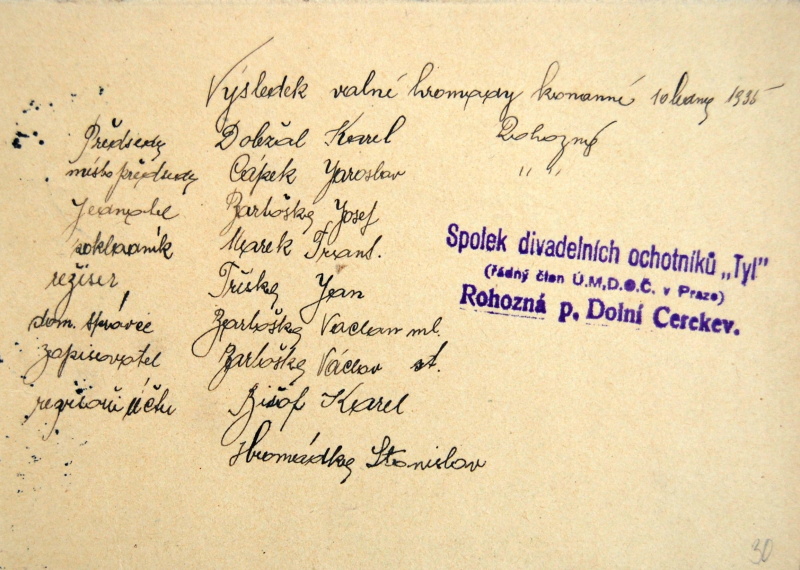 Výsledek valné hromady konanné 10 ledna 1935
Předseda Dobžál Karel Rohozná
místopředseda Cápek Jaroslav " "
Jednatel Bartůška Josef
pokladník Marek Frant.
režiser Tříska Jan
dom. správce Bartůška Vaclav ml.
zapisovatel Bartůška Václav st.
revisoři účtu Bišof Karel
Hromádka Stanislav
Spolek divadelních ochotníků „Tyl"
(řádný člen Ú.M.D.O.Č. v Praze)
Rohozná p. Dolní Cerekev.
30